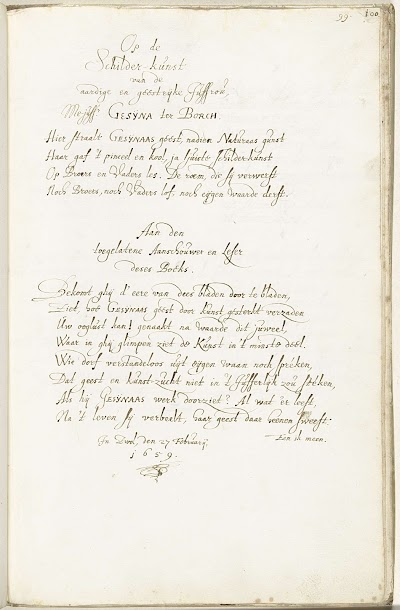 99. 100
Op de
Schilder-kunst
van de
aardige en geestrijke Juffrou,
Mejuffr GESYNA ter BORCH.
Hier straalt GESYNAAS geest, nadien Natuuras gunst
Haar gaf 't pinceel en kool, ja juiste schilderkunst
Op Broers en Vaders les. De roem, die sy verwerft
Noch Broers, noch Vaders lof, noch eygen waarde derft.
Aan den
toegelatene Aanschouwer en Leser
deses Boeks.
Bekomt ghy d' eere van dees bladen door te bladen,
Ziet, hoe GESYNAAS geest door kunst gesterkt verzaden
Uw ooglust kan! genaakt na waarde dit juweel,
Waar in ghy glimpen ziet de Kunst in 't minste deel.
Wie dorf verstandeloos uyt eygen waan noch spreken,
Dat geest en kunst-zucht niet in 't Jufferlijk zou steken,
Als hij GESYNAAS werk doorziet? Al wat'er leeft,
Na 't leven sy verbeelt, haar geest daar henen sweeft.
In Zwol, den 27 February,
Een is meen.
1659.